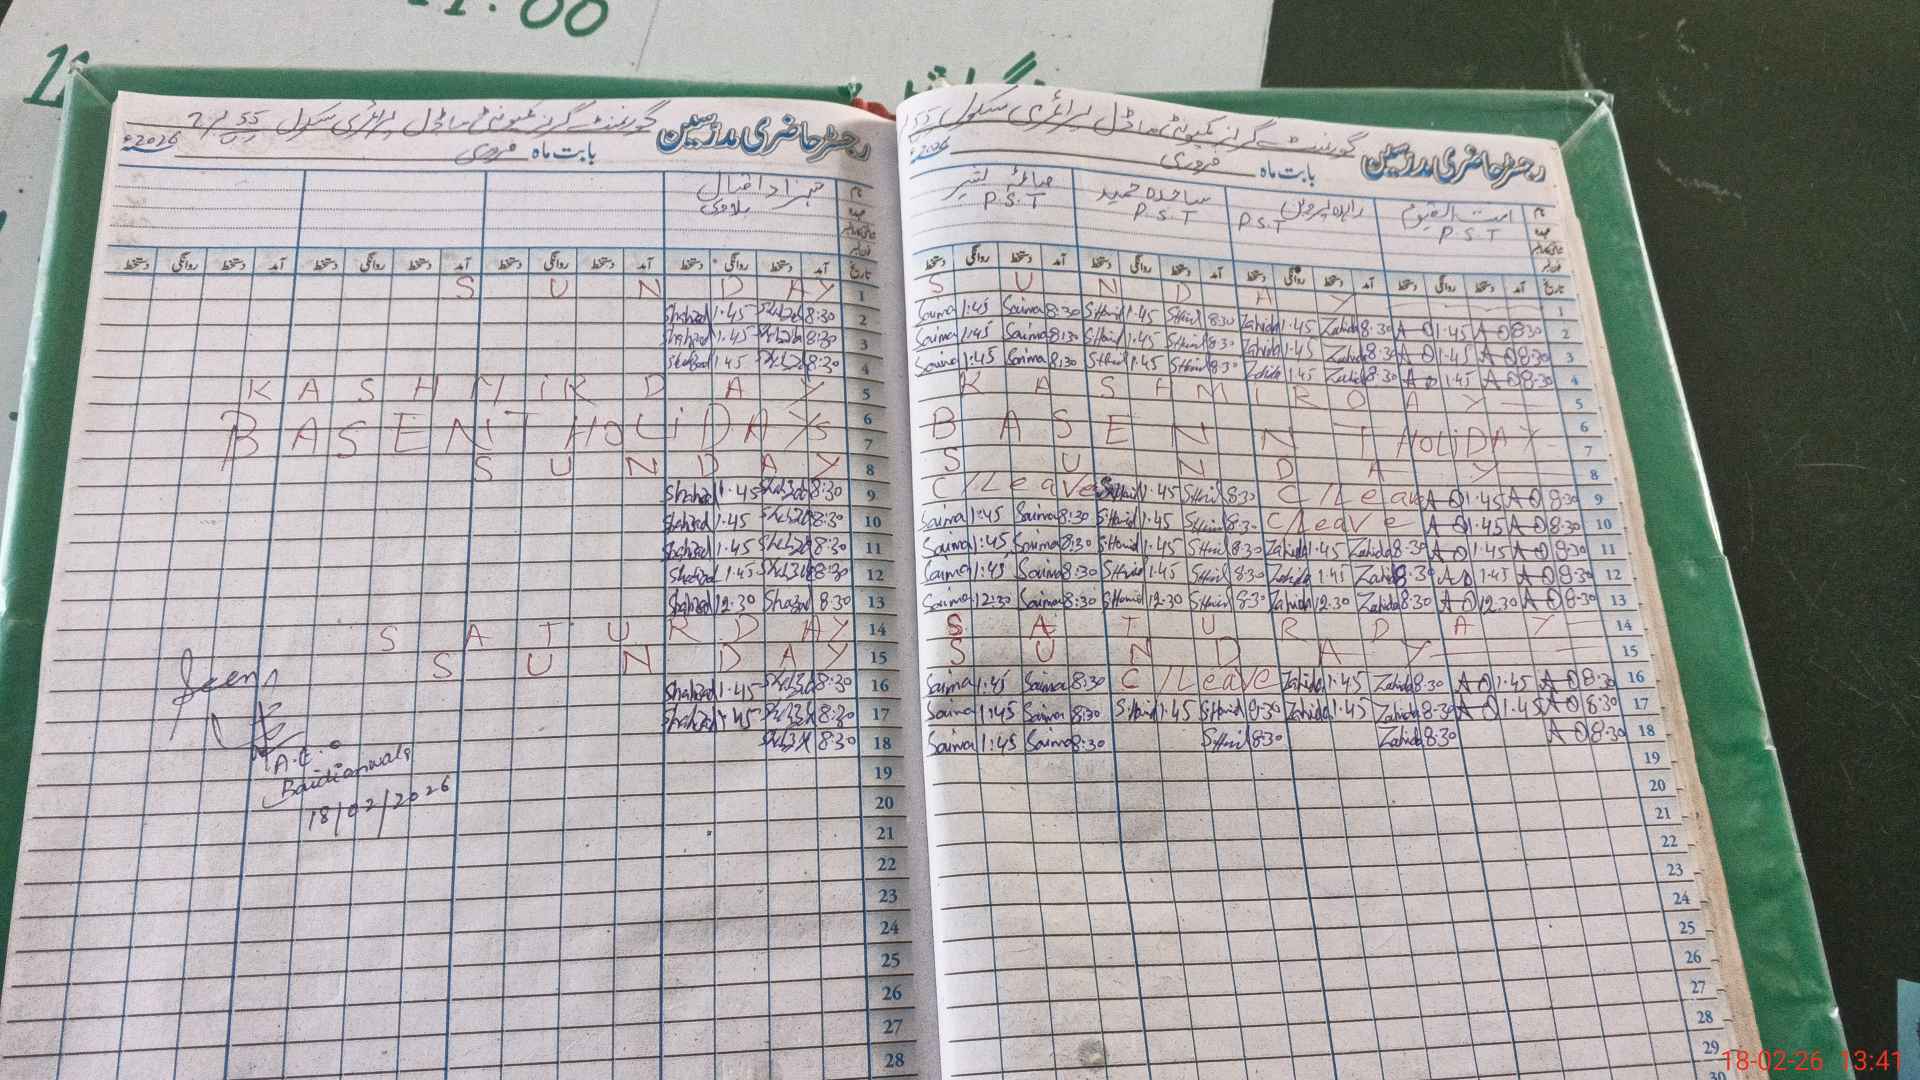 11:00
رجسٹر حاضری مدرسین گورنمنٹ گرلز کمیونٹی ماڈل پرائمری سکول 55
بابت ماہ فروری 2026ء
امت القیوم P.S.T
زاہدہ پروین P.S.T
ساجدہ حمید P.S.T
صائمہ P.S.T
تاریخ آمد دستخط روانگی دستخط آمد دستخط روانگی دستخط آمد دستخط روانگی دستخط آمد دستخط روانگی دستخط
SUNDAY 1
Saima 1:45 Saima 8:30 S Hamid 1.45 S Hamid 8:30 Zahida 1.45 Zahida 8.30 A Q 1.45 A Q 8:30 2
Saima 1:45 Saima 8:30 S Hamid 1.45 S Hamid 8:30 Zahida 1.45 Zahida 8.30 A Q 1.45 A Q 8:30 3
Saima 1:45 Saima 8:30 S Hamid 1.45 S Hamid 8:30 Zahida 1.45 Zahida 8.30 A Q 1.45 A Q 8:30 4
KASHMIR DAY 5
BASENNT HOLiDAY 6
7
SUNDAY 8
C/Leave S Hamid 1.45 S Hamid 8:30 C/Leave A Q 1.45 A Q 8:30 9
Saima 1:45 Saima 8:30 S Hamid 1.45 S Hamid 8:30 C/Leave A Q 1.45 A Q 8:30 10
Saima 1:45 Saima 8:30 S Hamid 1.45 S Hamid 8:30 Zahida 1.45 Zahida 8.30 A Q 1.45 A Q 8:30 11
Saima 1:45 Saima 8:30 S Hamid 1.45 S Hamid 8:30 Zahida 1.45 Zahida 8:30 A Q 1.45 A Q 8:30 12
Saima 12:30 Saima 8:30 S Hamid 12.30 S Hamid 8:30 Zahida 12.30 Zahida 8.30 A Q 12.30 A Q 8:30 13
SATURDAY 14
SUNDAY 15
Saima 1:45 Saima 8:30 C/Leave Zahida 1.45 Zahida 8:30 A Q 1.45 A Q 8:30 16
Saima 1:45 Saima 8:30 S Hamid 1.45 S Hamid 8:30 Zahida 1.45 Zahida 8:30 A Q 1.45 A Q 8:30 17
Saima 1:45 Saima 8:30 S Hamid 8:30 Zahida 8:30 A Q 8:30 18
19
20
21
22
23
24
25
26
27
28
29
30
رجسٹر حاضری مدرسین گورنمنٹ گرلز کمیونٹی ماڈل پرائمری سکول 55
بابت ماہ فروری 2026ء
شہزاد اقبال
تاریخ آمد دستخط روانگی دستخط آمد دستخط روانگی دستخط آمد دستخط روانگی دستخط آمد دستخط روانگی دستخط
SUNDAY 1
Shahzad 1.45 Shahzad 8:30 2
Shahzad 1.45 Shahzad 8:30 3
Shahzad 1.45 Shahzad 8:30 4
KASHMiR DAY 5
BASENT HOLiDAYs 6
7
SUNDAY 8
Shahzad 1.45 Shahzad 8:30 9
Shahzad 1.45 Shahzad 8:30 10
Shahzad 1.45 Shahzad 8:30 11
Shahzad 1.45 Shahzad 8:30 12
Shahzad 12.30 Shahzad 8:30 13
SATURDAY 14
SUNDAY 15
Shahzad 1.45 Shahzad 8:30 16
Shahzad 1.45 Shahzad 8:30 17
Shahzad 8:30 18
19
20
21
22
23
24
25
26
27
28
Seen
18/02/2026
18-02-26 13:41